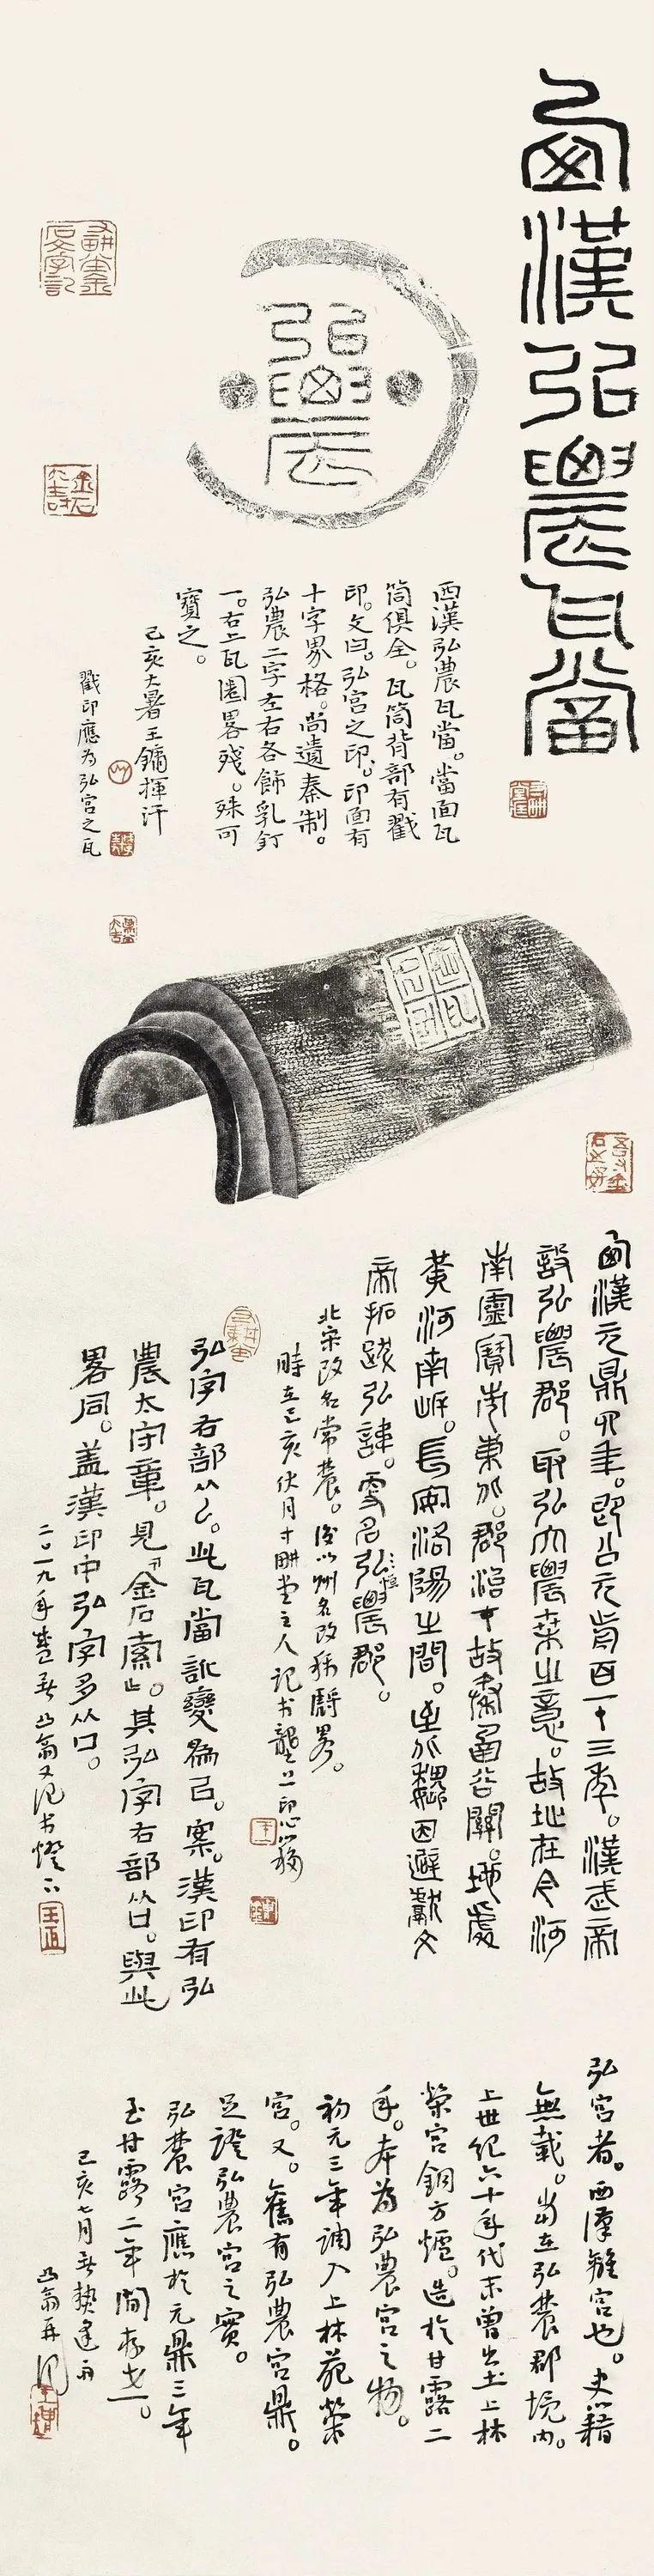 西漢弘農瓦當
弘農
西漢弘農瓦當。當面瓦
筒俱全。瓦筒背部有戳
印。文曰。弘宮之印。印面有
十字界格。尚遺秦制。
弘農二字左右各飾乳釘
一。右上瓦圈畧殘。殊可
寶之。
己亥大暑王鏞揮汗
戳印應为弘宮之瓦
西漢元鼎四年。即公元前百一十三季。漢武帝
設弘農郡。取弘大農桑之意。故地在今河
南靈寶市東北。郡治中故秦函谷關。地處
黃河南岸。長安洛陽之間。北魏因避獻文
帝拓跋弘諱。更名恒農郡。
北宋改名常農。後以州名改稱
時在己亥伏月寸耕堂主人記书
弘字右部从厶。此瓦當訛變爲㠯。案。漢印有弘
農太守章。見《金石索》。其弘字右部从口。與此
畧同。蓋漢印中弘字多从口。
二〇一九年 凸翁又记书燈下
弘宮者。西漢離宮也。史籍
無載。當在弘農郡境内。
上世紀六十年代末曾出土上林
榮宮銅方爐。造於甘露二
年。本为弘農宮之物。
初元三年调入上林苑榮
宮。又。舊有弘農宮鼎。
足證弘農宮之實。
弘農宮應於元鼎三年
至甘露二年間存世。
己亥七月
凸翁再记